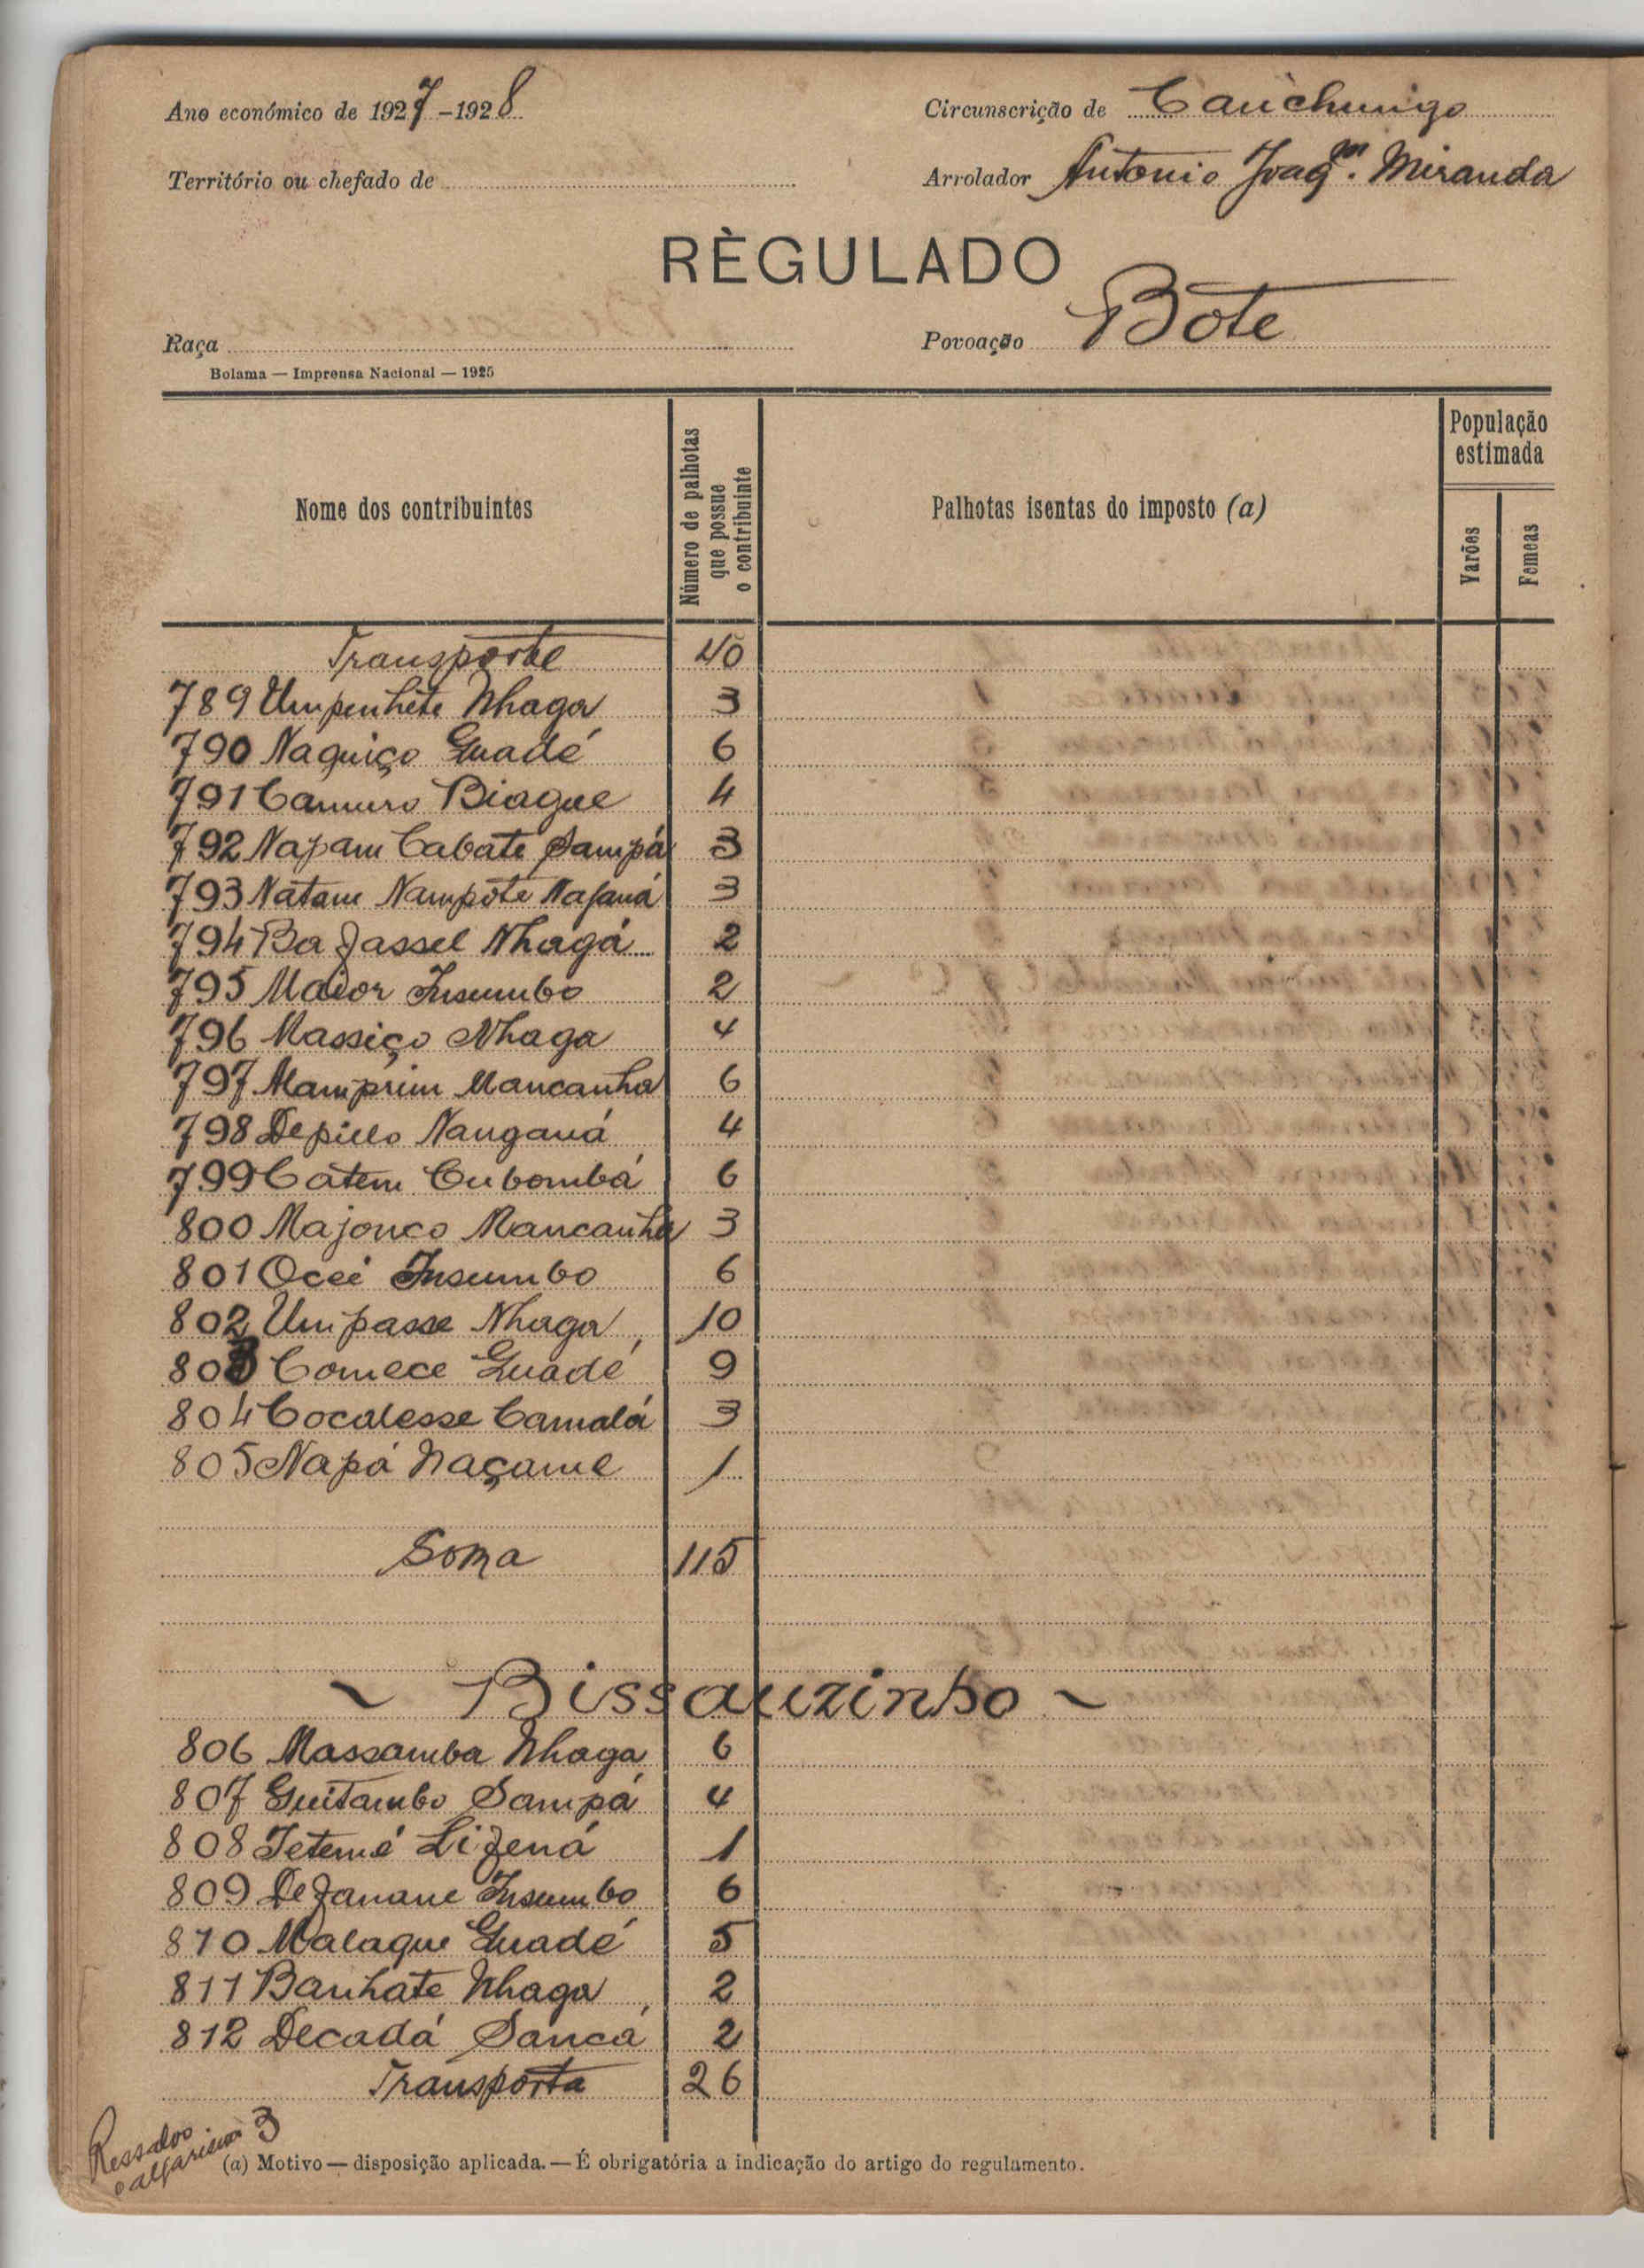 Ano económico de 1927-1928
Circunscrição de Canchungo
Território ou chefado de
Arrolador Antonio Joaqm. Miranda
RÈGULADO
Raça
Povoação Bote
Bolama — Imprensa Nacional — 1925
Nome dos contribuintes
Número de palhotas que possue o contribuinte
Palhotas isentas do imposto (a)
População estimada
Varões
Femeas
Transporte 40
789 Umpenhête Nhaga 3
790 Naquiço Guadé 6
791 Camuro Biague 4
792 Napam Cabate Sampá 3
793 Natam Nampote Nafaná 3
794 Ba Jassel Nhagá 2
795 Maior Insumbo 2
796 Massiço Nhaga 4
797 Mamprim Mancanha 6
798 Depillo Nanganá 4
799 Catem Cubombá 6
800 Majonco Mancanha 3
801 Ocei Insumbo 6
802 Umpasse Nhaga 10
803 Comece Guadé 9
804 Cocalesse Camalá 3
805 Napá Naçame 1
Soma 115
~ Bissauzinho ~
806 Massamba Nhaga 6
807 Guitambo Sampá 4
808 Tetemé Lizená 1
809 Dezanane Insumbo 6
810 Malaque Guadé 5
811 Banhate Nhaga 2
812 Decadá Sancá 2
Transporta 26
Ressalvo o algarismo 3
(a) Motivo — disposição aplicada. — É obrigatória a indicação do artigo do regulamento.